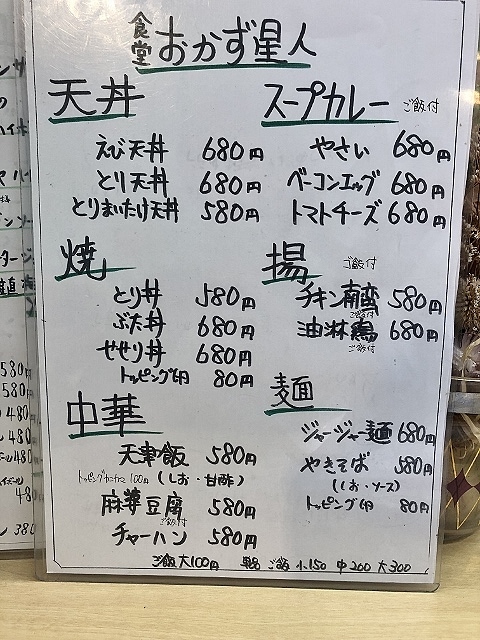 食堂 おかず星人
天丼
えび天丼 680円
とり天丼 680円
とりまいたけ天丼 580円
スープカレー ご飯付
やさい 680円
ベーコンエッグ 680円
トマトチーズ 680円
焼
とり丼 580円
ぶた丼 680円
せせり丼 680円
トッピング卵 80円
揚 ご飯付
チキン南蛮 580円
ご飯付
油淋鶏 680円
ご飯付
中華
天津飯 580円
100円 (しお・甘酢)
麻婆豆腐 580円
ご飯付
チャーハン 580円
麺
ジャージャー麺 680円
やきそば 580円
(しお・ソース)
トッピング卵 80円
ご飯大100円 単品 ご飯 小150 中200 大300
580円
580円
480
480
480
48
380